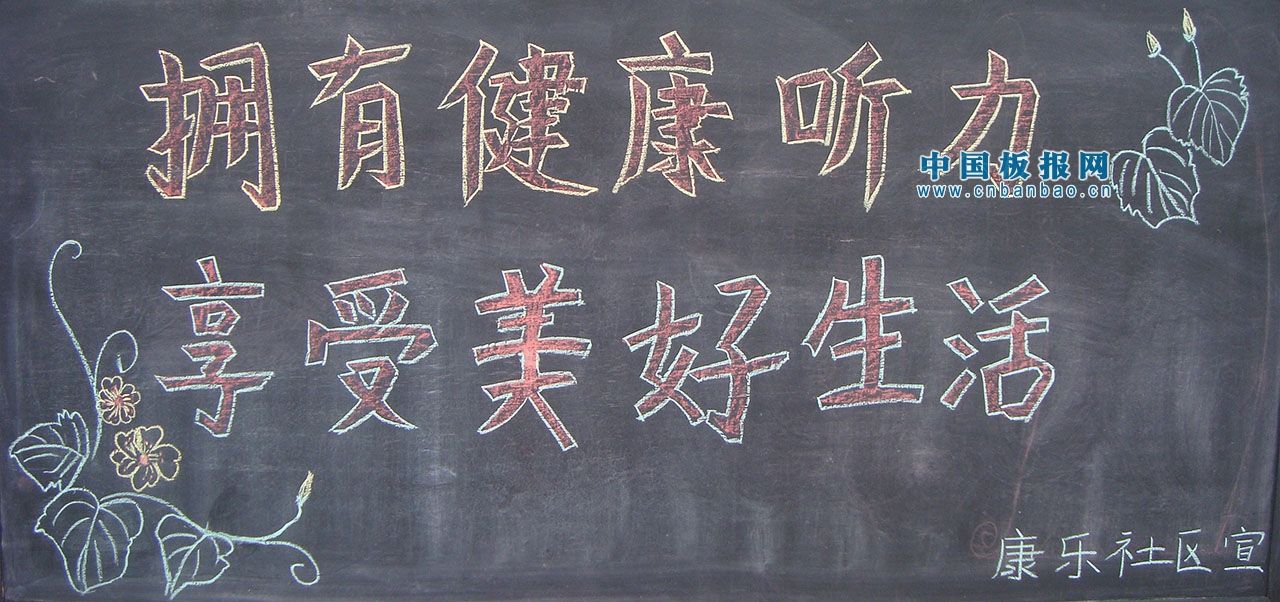 拥有健康听力
中国板报网
www.cnbanbao.cn
享受美好生活
康乐社区宣